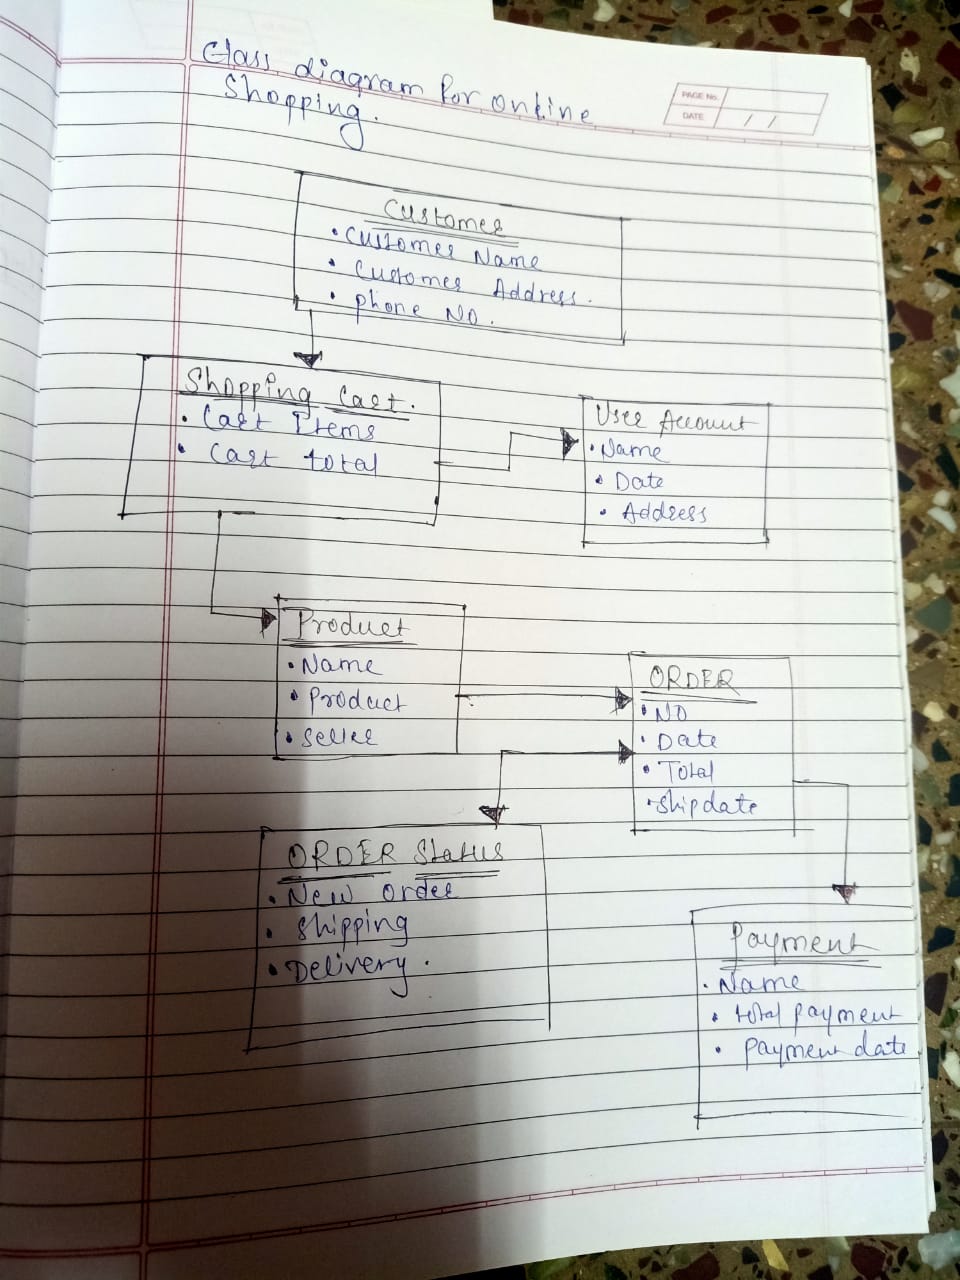 Class diagram for online
Shopping.
PAGE No.
DATE / /
Customer
• Customer Name
• Customer Address.
• phone NO.
Shopping Cart.
• Cart Items
• Cart total
User Account
• Name
• Date
• Address
Product
• Name
• Product
• Seller
ORDER
• NO
• Date
• Total
• Shipdate
ORDER Status
• New order
• Shipping
• Delivery.
Payment
• Name
• total payment
• payment date